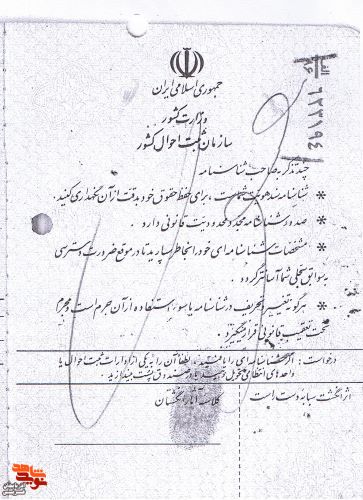 الف ۲۶
۶۲۳۱۹۴
جمهوری اسلامی ایران
وزارت کشور
سازمان ثبت احوال کشور
چند تذکر به صاحب شناسنامه
* شناسنامه سند هویت شماست، برای حفظ حقوق خود بدقت از آن نگهداری کنید.
* صدور شناسنامه مجدد محدودیت قانونی دارد.
* مشخصات شناسنامه ای خود را بخاطر بسپارید تا در موقع ضرورت دسترسی
به سوابق سجلی شما آسانتر گردد.
* هرگونه تغییر و تحریف در شناسنامه یا سوء استفاده از آن جرم است و مجرم
تحت تعقیب قانونی قرار میگیرد.
درخواست: اگر شناسنامه ای را یافتید، لطفاً آن را به یکی از ادارات ثبت احوال یا
واحدهای انتظامی تحویل دهید یا در صندوق پست بیندازید.
اثر انگشت سبابه دست است
کلاسه آثار انگشتان
نوید شاهد